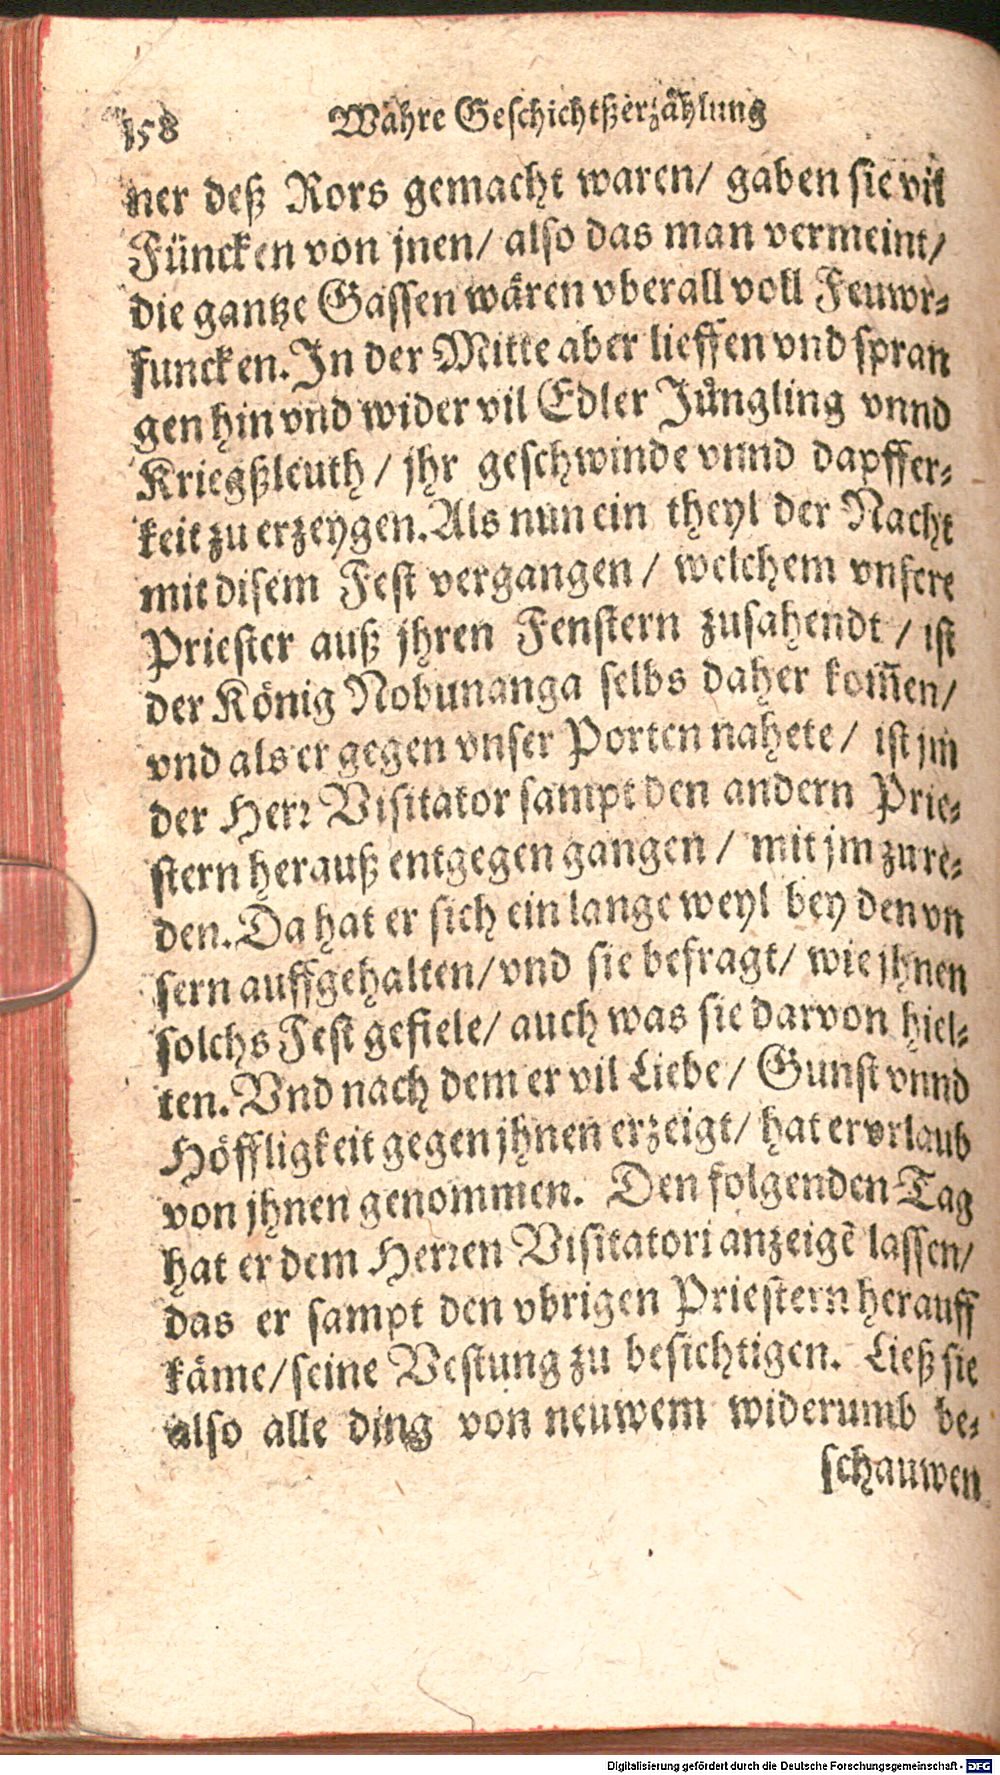 158 Wahre Geschichtßerzählung
ner deß Rors gemacht waren/ gaben sie vil
Füncken von jnen/ also das man vermeint/
die gantze Gassen wären vberall voll Feuwr⸗
funcken. In der Mitte aber lieffen vnd spran
gen hin vnd wider vil Edler Jüngling vnnd
Kriegßleuth/ jhr geschwinde vnnd dapffer⸗
keit zu erzeygen. Als nun ein theyl der Nacht
mit disem Fest vergangen/ welchem vnsere
Priester auß jhren Fenstern zusahendt/ ist
der König Nobunanga selbs daher kom̃en/
vnd als er gegen vnser Porten nahete/ ist jm
der Herr Visitator sampt den andern Prie⸗
stern herauß entgegen gangen/ mit jm zu re⸗
den. Da hat er sich ein lange weyl bey den vn
sern auffgehalten/ vnd sie befragt/ wie jhnen
solchs Fest gefiele/ auch was sie darvon hiel⸗
ten. Vnd nach dem er vil Liebe/ Gunst vnnd
Höffligkeit gegen jhnen erzeigt/ hat er vrlaub
von jhnen genommen. Den folgenden Tag
hat er dem Herren Visitatori anzeigẽ lassen/
das er sampt den vbrigen Priestern herauff
käme/ seine Vestung zu besichtigen. Ließ sie
also alle ding von neuwem widerumb be⸗
schauwen
Digitalisierung gefördert durch die Deutsche Forschungsgemeinschaft - DFG